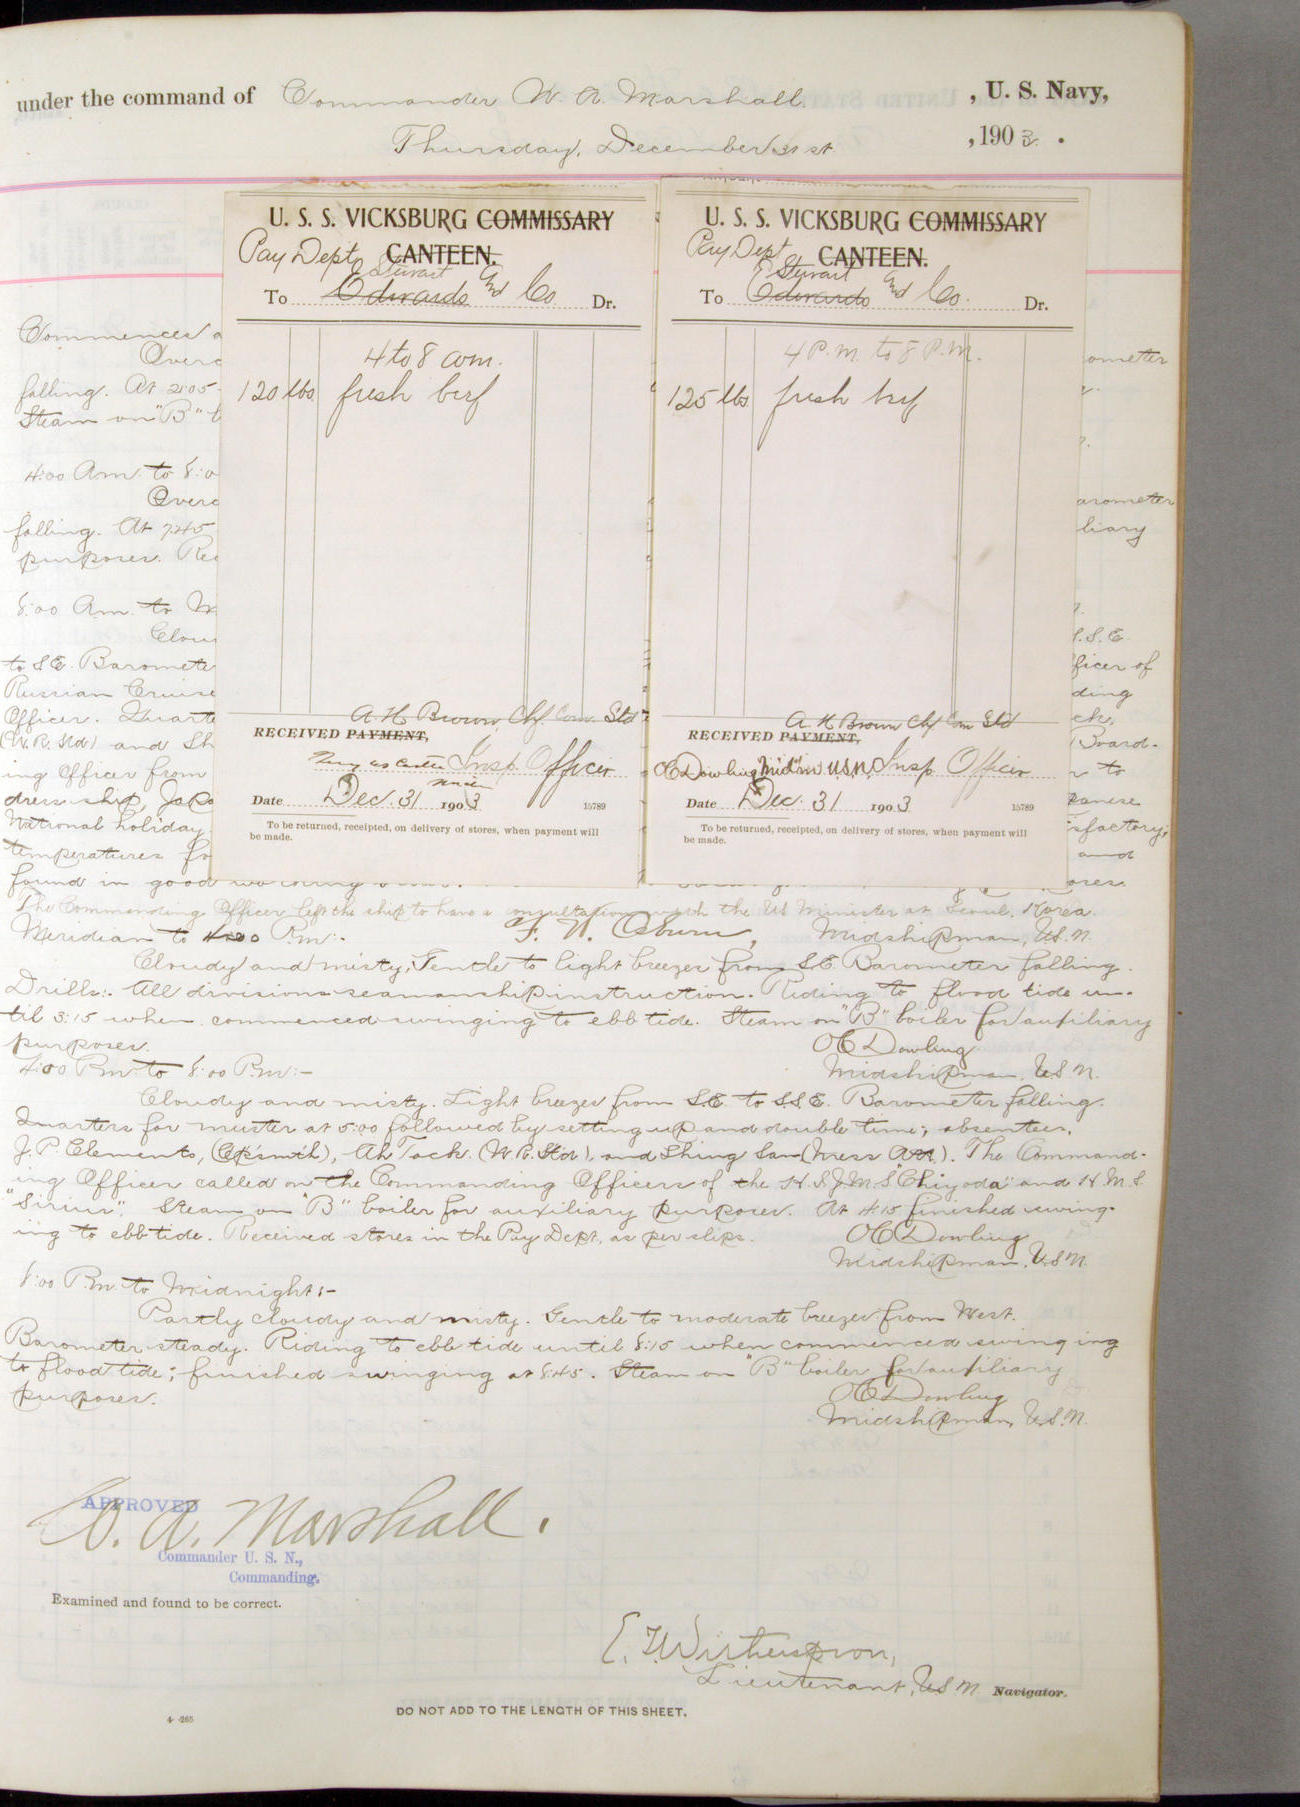 under the command of Commander W. A. Marshall, U. S. Navy,
Thursday, December 31st, 1903.
U. S. S. VICKSBURG COMMISSARY
CANTEEN.
Pay Dept
E Stewart and
To Edwards Co Dr.
4 to 8 a.m.
120 lbs fresh beef
A. H. Brown, Chf Com. Std
RECEIVED PAYMENT,
Insp. Officer
Date Dec. 31 1903
15789
To be returned, receipted, on delivery of stores, when payment will
be made.
U. S. S. VICKSBURG COMMISSARY
CANTEEN.
Pay Dept
E Stewart and
To Edwards Co. Dr.
4 P.M. to 8 P.M.
125 lbs fresh beef
A H Brown Chf Com Std
RECEIVED PAYMENT,
OC Dowling Mid'n U.S.N. Insp. Officer
Date Dec. 31 1903
15789
To be returned, receipted, on delivery of stores, when payment will
be made.
Commences
falling. At 2:05 ometer
Steam on "B"
4:00 Am. to 8:0
Overc arometer
falling. At 7:45 liary
purposes. Rec
8:00 Am. to M
Clou S.S.E.
to S.E. Baromete fficer of
Russian Cruise ding
Officer. Quarte
(W. R. Std) and Sh Board-
ing Officer from to
dress ship, Japa panese
National holiday. sfactory;
temperatures fo and
found in good working
The Commanding Officer left the ship to have a consultation with the US Minister at Seoul, Korea.
Meridian to 4:00 P.m:- F. N. Osburn, Midshipman, U.S.N.
Cloudy and misty; Gentle to light breezes from S.E. Barometer falling.
Drills:- All divisions seamanship instruction. Riding to flood tide un-
til 3:15 when commenced swinging to ebb tide. Steam on "B" boiler for auxiliary
purposes. OC Dowling
4:00 P.m. to 8:00 P.m:- Midshipman, U.S.N.
Cloudy and misty. Light breezes from S.E. to S.S.E. Barometer falling.
Quarters for muster at 5:00 followed by setting up and double time; absentees,
J. P. Clements, (Cp'smith), Ah Tock (W. R. Std), and Shing San (Mess Att). The Command-
ing Officer called on the Commanding Officers of the H.I.J.M.S. "Chiyoda" and H.M.S.
"Sirius". Steam on "B" boiler for auxiliary purposes. At 4:15 finished swing-
ing to ebb tide. Received stores in the Pay Dept. as per slips. OC Dowling
Midshipman, U.S.N.
8:00 P.m. to Midnight:-
Partly cloudy and misty. Gentle to moderate breezes from West.
Barometer steady. Riding to ebb tide until 8:15 when commenced swinging
to flood tide; finished swinging at 8:45. Steam on "B" boiler for auxiliary
purposes. OC Dowling
Midshipman, U.S.N.
APPROVED
W. A. Marshall.
Commander U. S. N.,
Commanding.
Examined and found to be correct.
E. T. Witherspoon,
Lieutenant, U.S.N. Navigator.
DO NOT ADD TO THE LENGTH OF THIS SHEET.
4-265